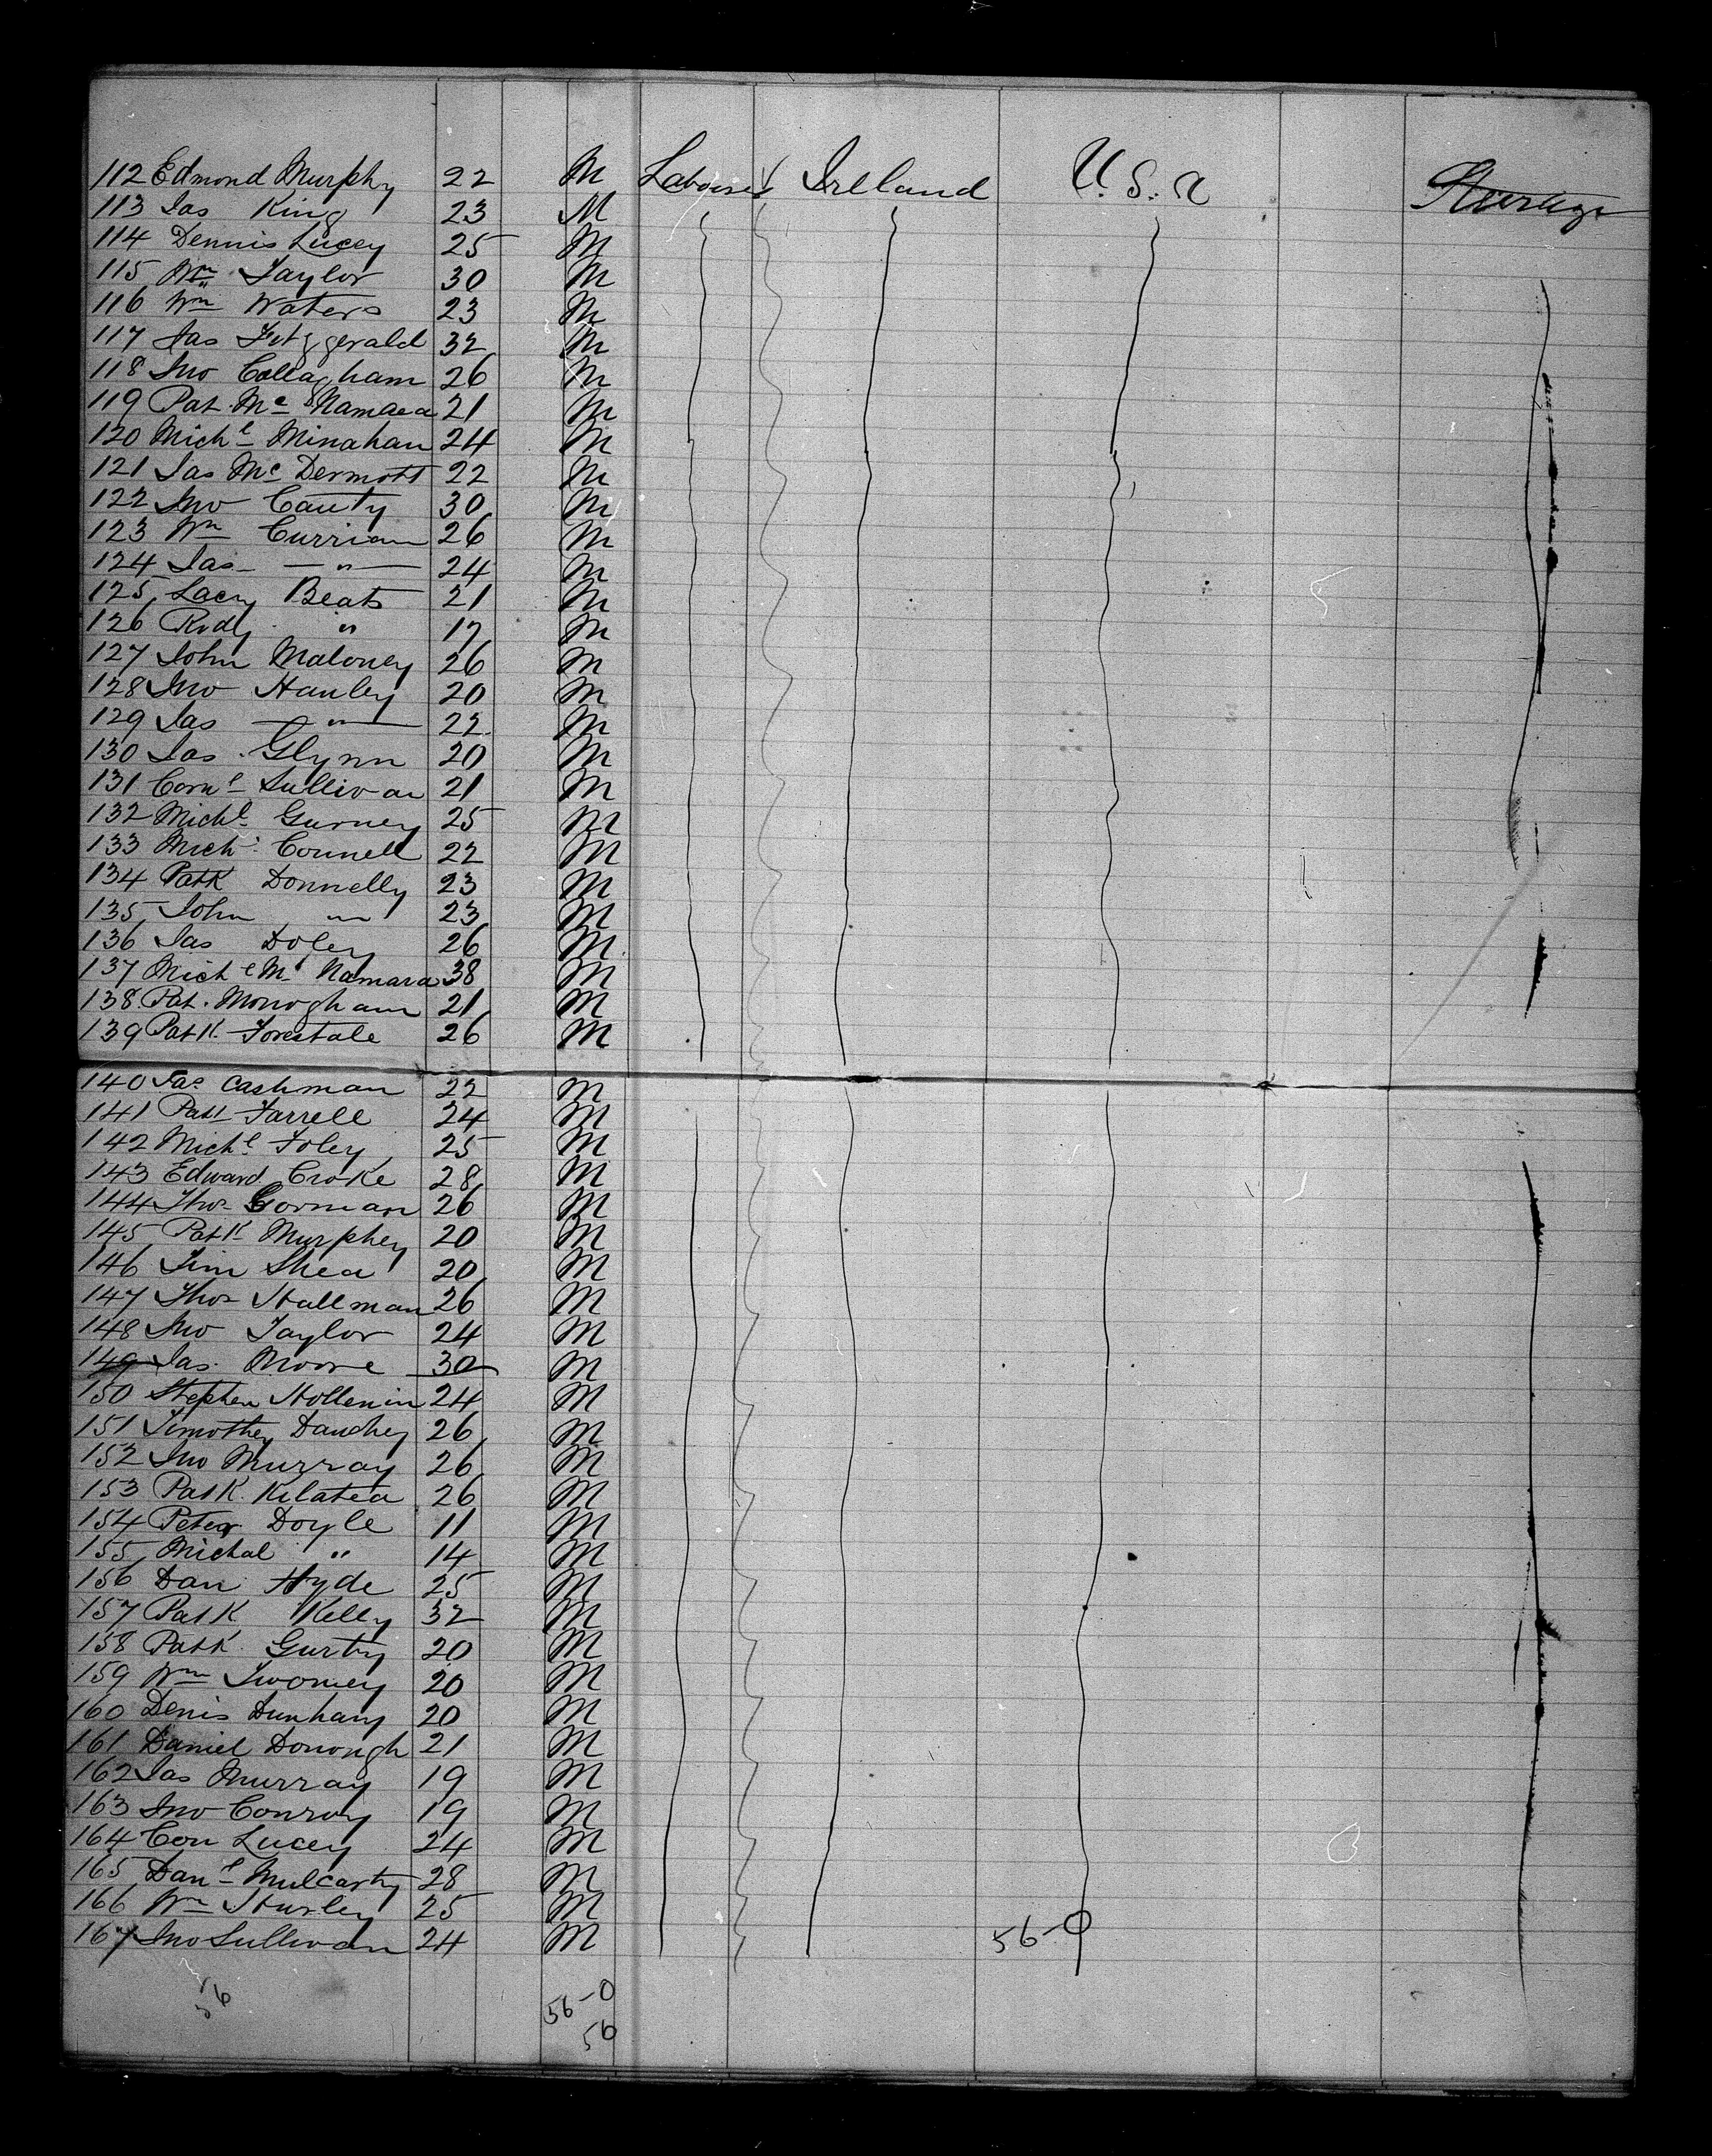 112 Edmond Murphy 22 M Labourer Ireland U.S.A Steerage
113 Jas King 23 M
114 Dennis Lucey 25 M
115 Wm Taylor 30 M
116 Wm Waters 23 M
117 Jas Fitzgerald 32 M
118 Jno Collagham 26 M
119 Pat. Mc Namara 21 M
120 Michl Minahan 24 M
121 Jas Mc Dermott 22 M
122 Jno Cauty 30 M
123 Wm Curriam 26 M
124 Jas — " — 24 M
125 Lacy Beats 21 M
126 Rody " 17 M
127 John Maloney 26 M
128 Jno Hanley 20 M
129 Jas — " — 22 M
130 Jas. Glynn 20 M
131 Cornl Sullivan 21 M
132 Michl Gurney 25 M
133 Mich. Connell 22 M
134 Patk Donnelly 23 M
135 John " 23 M
136 Jas Doley 26 M
137 Michl Mc Namara 38 M
138 Pat. Monogham 21 M
139 Patk. Forestale 26 M
140 Jas Cashman 22 M
141 Patk Farrell 24 M
142 Michl Foley 25 M
143 Edward Croke 28 M
144 Thos Gorman 26 M
145 Patk Murphey 20 M
146 Tim Shea 20 M
147 Thos Hallman 26 M
148 Jno Taylor 24 M
149 Jas. Moore 30 M
150 Stephen Hollenin 24 M
151 Timothey Dauchey 26 M
152 Jno Murray 26 M
153 Patk. Kilatea 26 M
154 Peter Doyle 11 M
155 Michal " 14 M
156 Dan Hyde 25 M
157 Patk Kelly 32 M
158 Patk Gurty 20 M
159 Wm Twomey 20 M
160 Denis Dunhany 20 M
161 Daniel Donough 21 M
162 Jas Murray 19 M
163 Jno Conroy 19 M
164 Con Lucey 24 M
165 Danl Mulcarty 28 M
166 Wm Hurley 25 M
167 Jno Sullivan 24 M 56-0
56 56-0
56